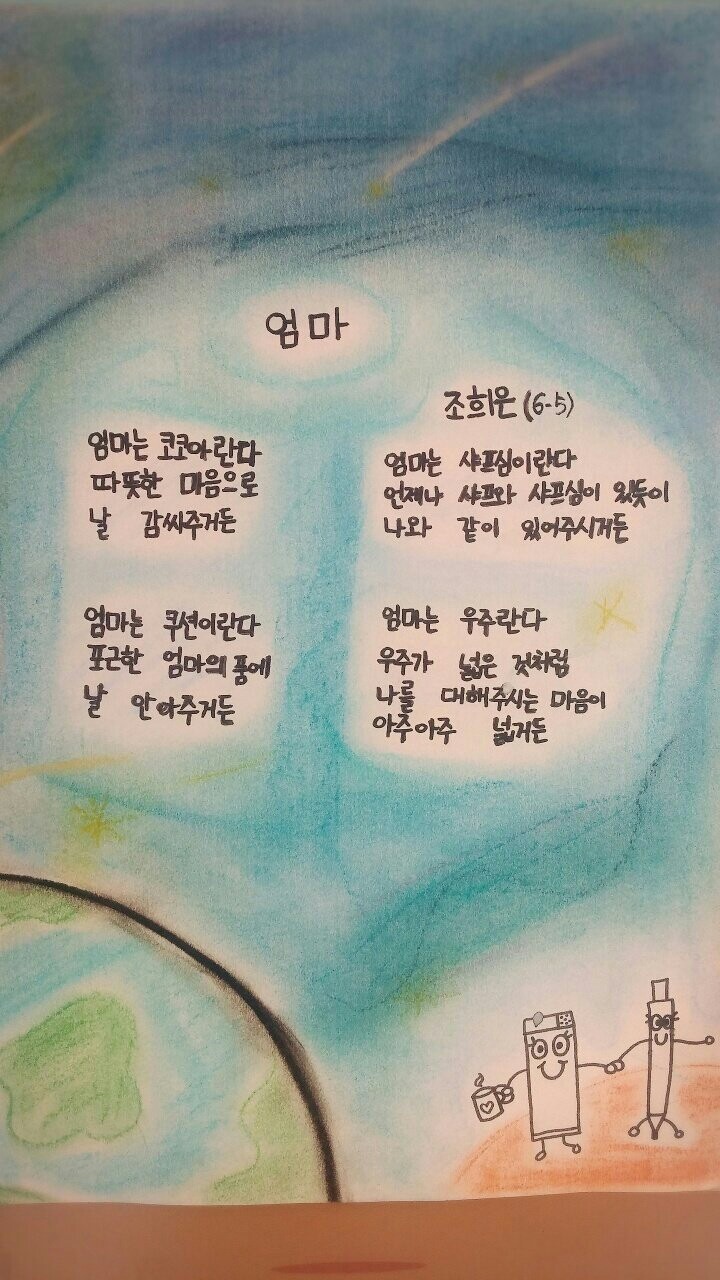 엄마
조희은 (6-5)
엄마는 코코아란다
따뜻한 마음으로
날 감싸주거든
엄마는 쿠션이란다
포근한 엄마의 품에
날 안아주거든
엄마는 샤프심이란다
언제나 샤프와 샤프심이 있듯이
나와 같이 있어주시거든
엄마는 우주란다
우주가 넓은 것처럼
나를 대해주시는 마음이
아주아주 넓거든